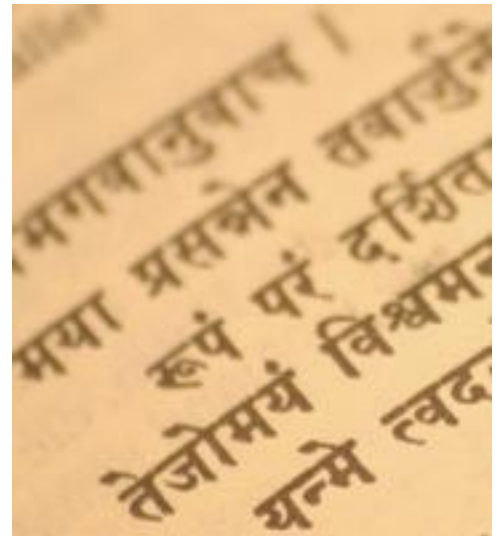 भगवानुवाच ।
मया प्रसन्नेन तवार्जुने
रूपं परं दर्शित
तेजोमयं विश्वमन
यन्मे त्वद